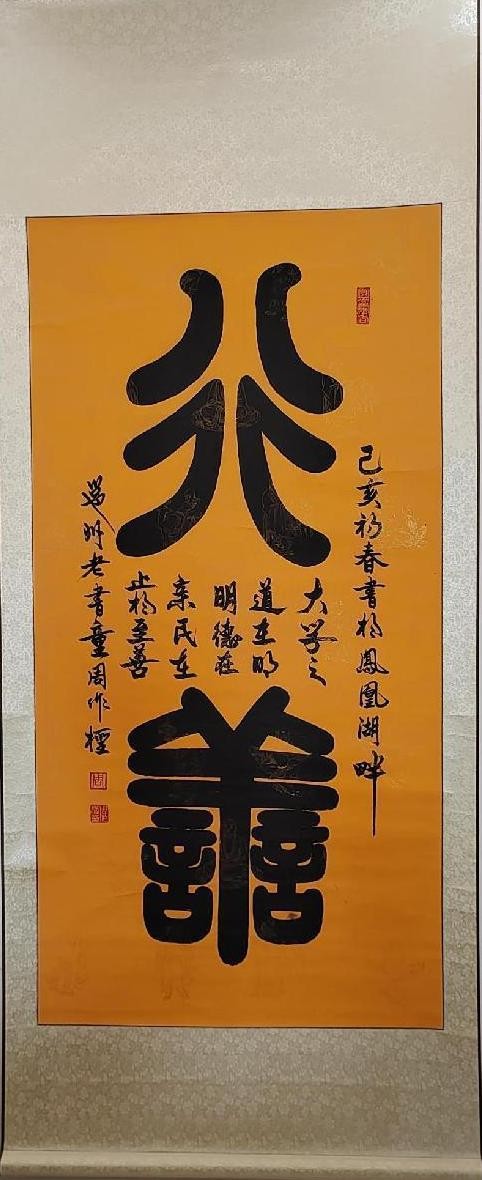 行善
己亥初春書於鳳凰湖畔
大学之
道在明
明德在
亲民在
止於至善
州老書童周作